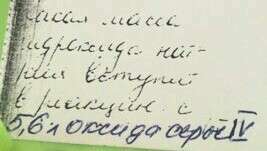 какая масса
гидроксида нат-
рия вступит
в реакцию с
5,6 л оксида серы IV